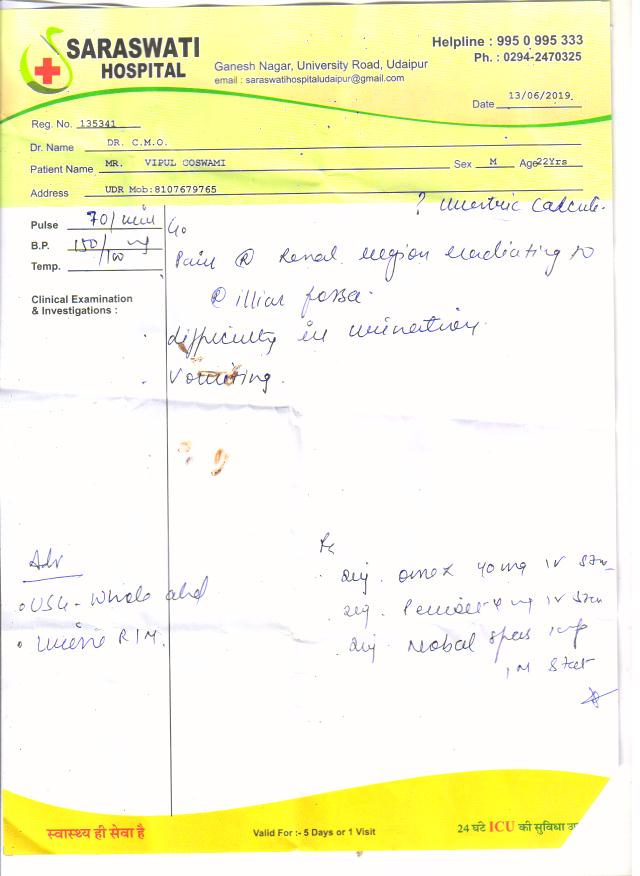 SARASWATI
HOSPITAL
Ganesh Nagar, University Road, Udaipur
email : saraswatihospitaludaipur@gmail.com
Helpline : 995 0 995 333
Ph. : 0294-2470325
Date 13/06/2019
Reg. No. 135341
Dr. Name DR. C.M.O.
Patient Name MR. VIPUL GOSWAMI Sex M Age 22Yrs
Address UDR Mob:8107679765
? Uretric Calculi.
Pulse 70/min
B.P. 150/100
Temp.
Clinical Examination
& Investigations :
C/o
Pain @ Renal region eradiating to
@ illiac fossa.
difficulty in urination
Vomiting.
Adv
• USG - Whole abd
• Urine R/M.
Rx
inj. omex 40 mg IV stat
inj. 4 mg IV stat
inj. spas
IM stat
स्वास्थ्य ही सेवा है
Valid For :- 5 Days or 1 Visit
24 घंटे ICU की सुविधा